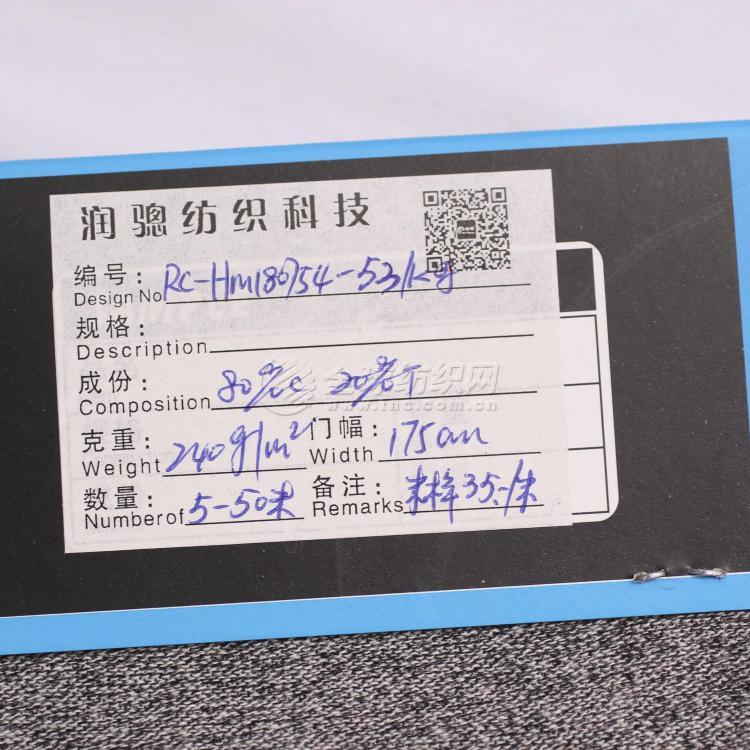 润骢纺织科技
编号: RC-Hm180754-53/kg
Design No
规格:
Description
成份: 80%c 20%T
Composition
克重: 240g/m² 门幅: 175cm
Weight Width
数量: 5-50米 备注: 米样35-/米
Numberof Remarks
全球纺织网
www.tnc.com.cn